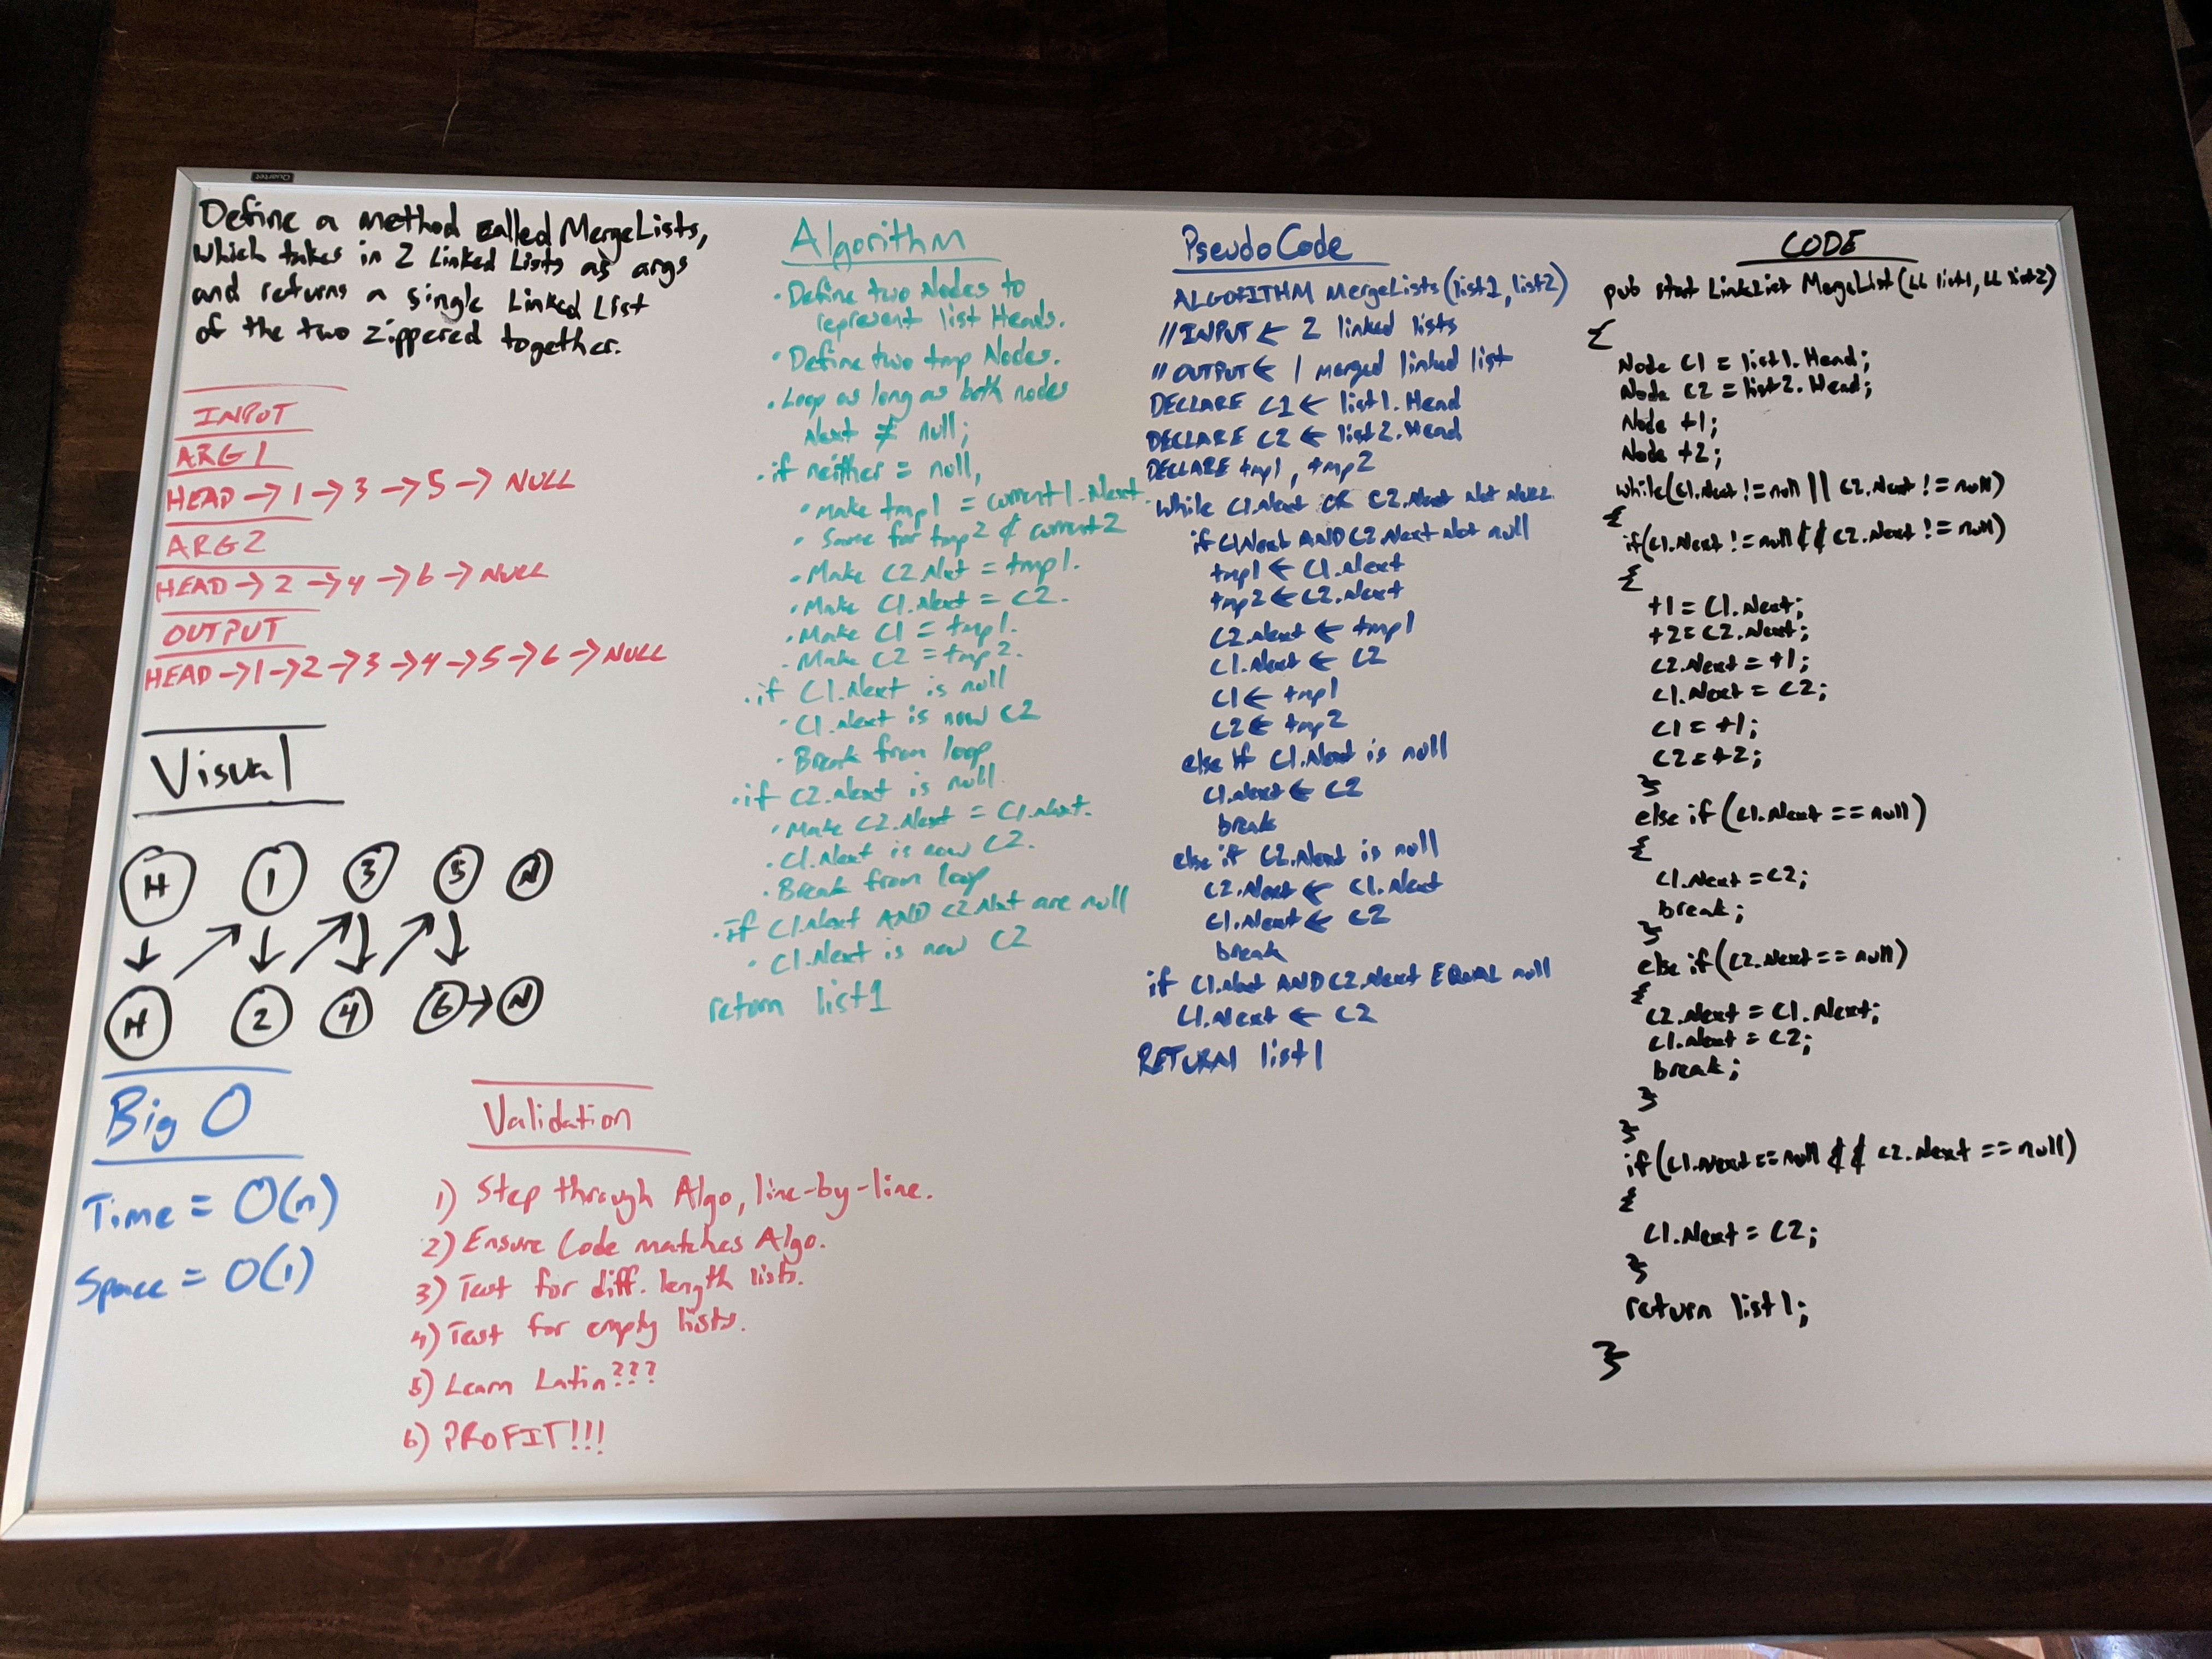 Quartet
Define a method called MergeLists,
which takes in 2 Linked Lists as args
and returns a single Linked List
of the two zippered together.
INPUT
ARG1
HEAD → 1 → 3 → 5 → NULL
ARG2
HEAD → 2 → 4 → 6 → NULL
OUTPUT
HEAD → 1 → 2 → 3 → 4 → 5 → 6 → NULL
Visual
H 1 3 5 N
H 2 4 6 → N
Big O
Time = O(n)
Space = O(1)
Validation
1) Step through Algo, line-by-line.
2) Ensure Code matches Algo.
3) Test for diff. length lists.
4) Test for empty lists.
5) Learn Latin???
6) PROFIT!!!
Algorithm
· Define two Nodes to
represent list Heads.
· Define two tmp Nodes.
· Loop as long as both nodes
Next ≠ null;
· if neither = null,
· Make tmp1 = current1.Next
· Same for tmp2 & current2
· Make C2.Nxt = tmp1.
· Make C1.Next = C2.
· Make C1 = tmp1.
· Make C2 = tmp2.
· if C1.Next is null
· C1.Next is now C2
· Break from loop
· if C2.Next is null
· Make C2.Next = C1.Next.
· C1.Next is now C2.
· Break from loop
· if C1.Next AND C2.Nxt are null
· C1.Next is now C2
return list1
PseudoCode
ALGORITHM MergeLists(list1, list2)
// INPUT ← 2 linked lists
// OUTPUT ← 1 merged linked list
DECLARE C1 ← list1.Head
DECLARE C2 ← list2.Head
DECLARE tmp1, tmp2
while C1.Next OR C2.Next Not NULL
if C1.Next AND C2.Next Not null
tmp1 ← C1.Next
tmp2 ← C2.Next
C2.Next ← tmp1
C1.Next ← C2
C1 ← tmp1
C2 ← tmp2
else if C1.Next is null
C1.Next ← C2
break
else if C2.Next is null
C2.Next ← C1.Next
C1.Next ← C2
break
if C1.Next AND C2.Next EQUAL null
C1.Next ← C2
RETURN list1
CODE
pub stat LinkList MergeList(LL list1, LL list2)
{
Node C1 = list1.Head;
Node C2 = list2.Head;
Node t1;
Node t2;
while(C1.Next != null || C2.Next != null)
{
if(C1.Next != null && C2.Next != null)
{
t1 = C1.Next;
t2 = C2.Next;
C2.Next = t1;
C1.Next = C2;
C1 = t1;
C2 = t2;
}
else if (C1.Next == null)
{
C1.Next = C2;
break;
}
else if (C2.Next == null)
{
C2.Next = C1.Next;
C1.Next = C2;
break;
}
}
if (C1.Next == null && C2.Next == null)
{
C1.Next = C2;
}
return list1;
}